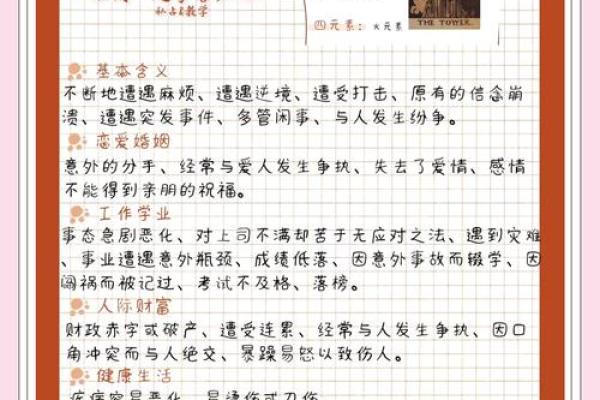 私占&教学
四元素：火元素
THE TOWER.
基本含义
不断地遭遇麻烦、遭遇逆境、遭受打击、原有的信念崩
溃、遭遇突发事件、多管闲事、与人发生纷争。
恋爱婚姻
意外的分手、经常与爱人发生争执、失去了爱情、感情
不能得到亲朋的祝福。
工作学业
事态急剧恶化、对上司不满却苦于无应对之法、遇到灾难
、事业遭遇意外瓶颈、成绩低落、因意外事故而辍学、因
闯祸而被记过、考试不及格、落榜。
人际财富
财政赤字或破产、遭受连累、经常与人发生争执、因口
角冲突而与人绝交、暴躁易怒以致伤人。
健康生活
疾病容易恶化、易烫伤或刀伤